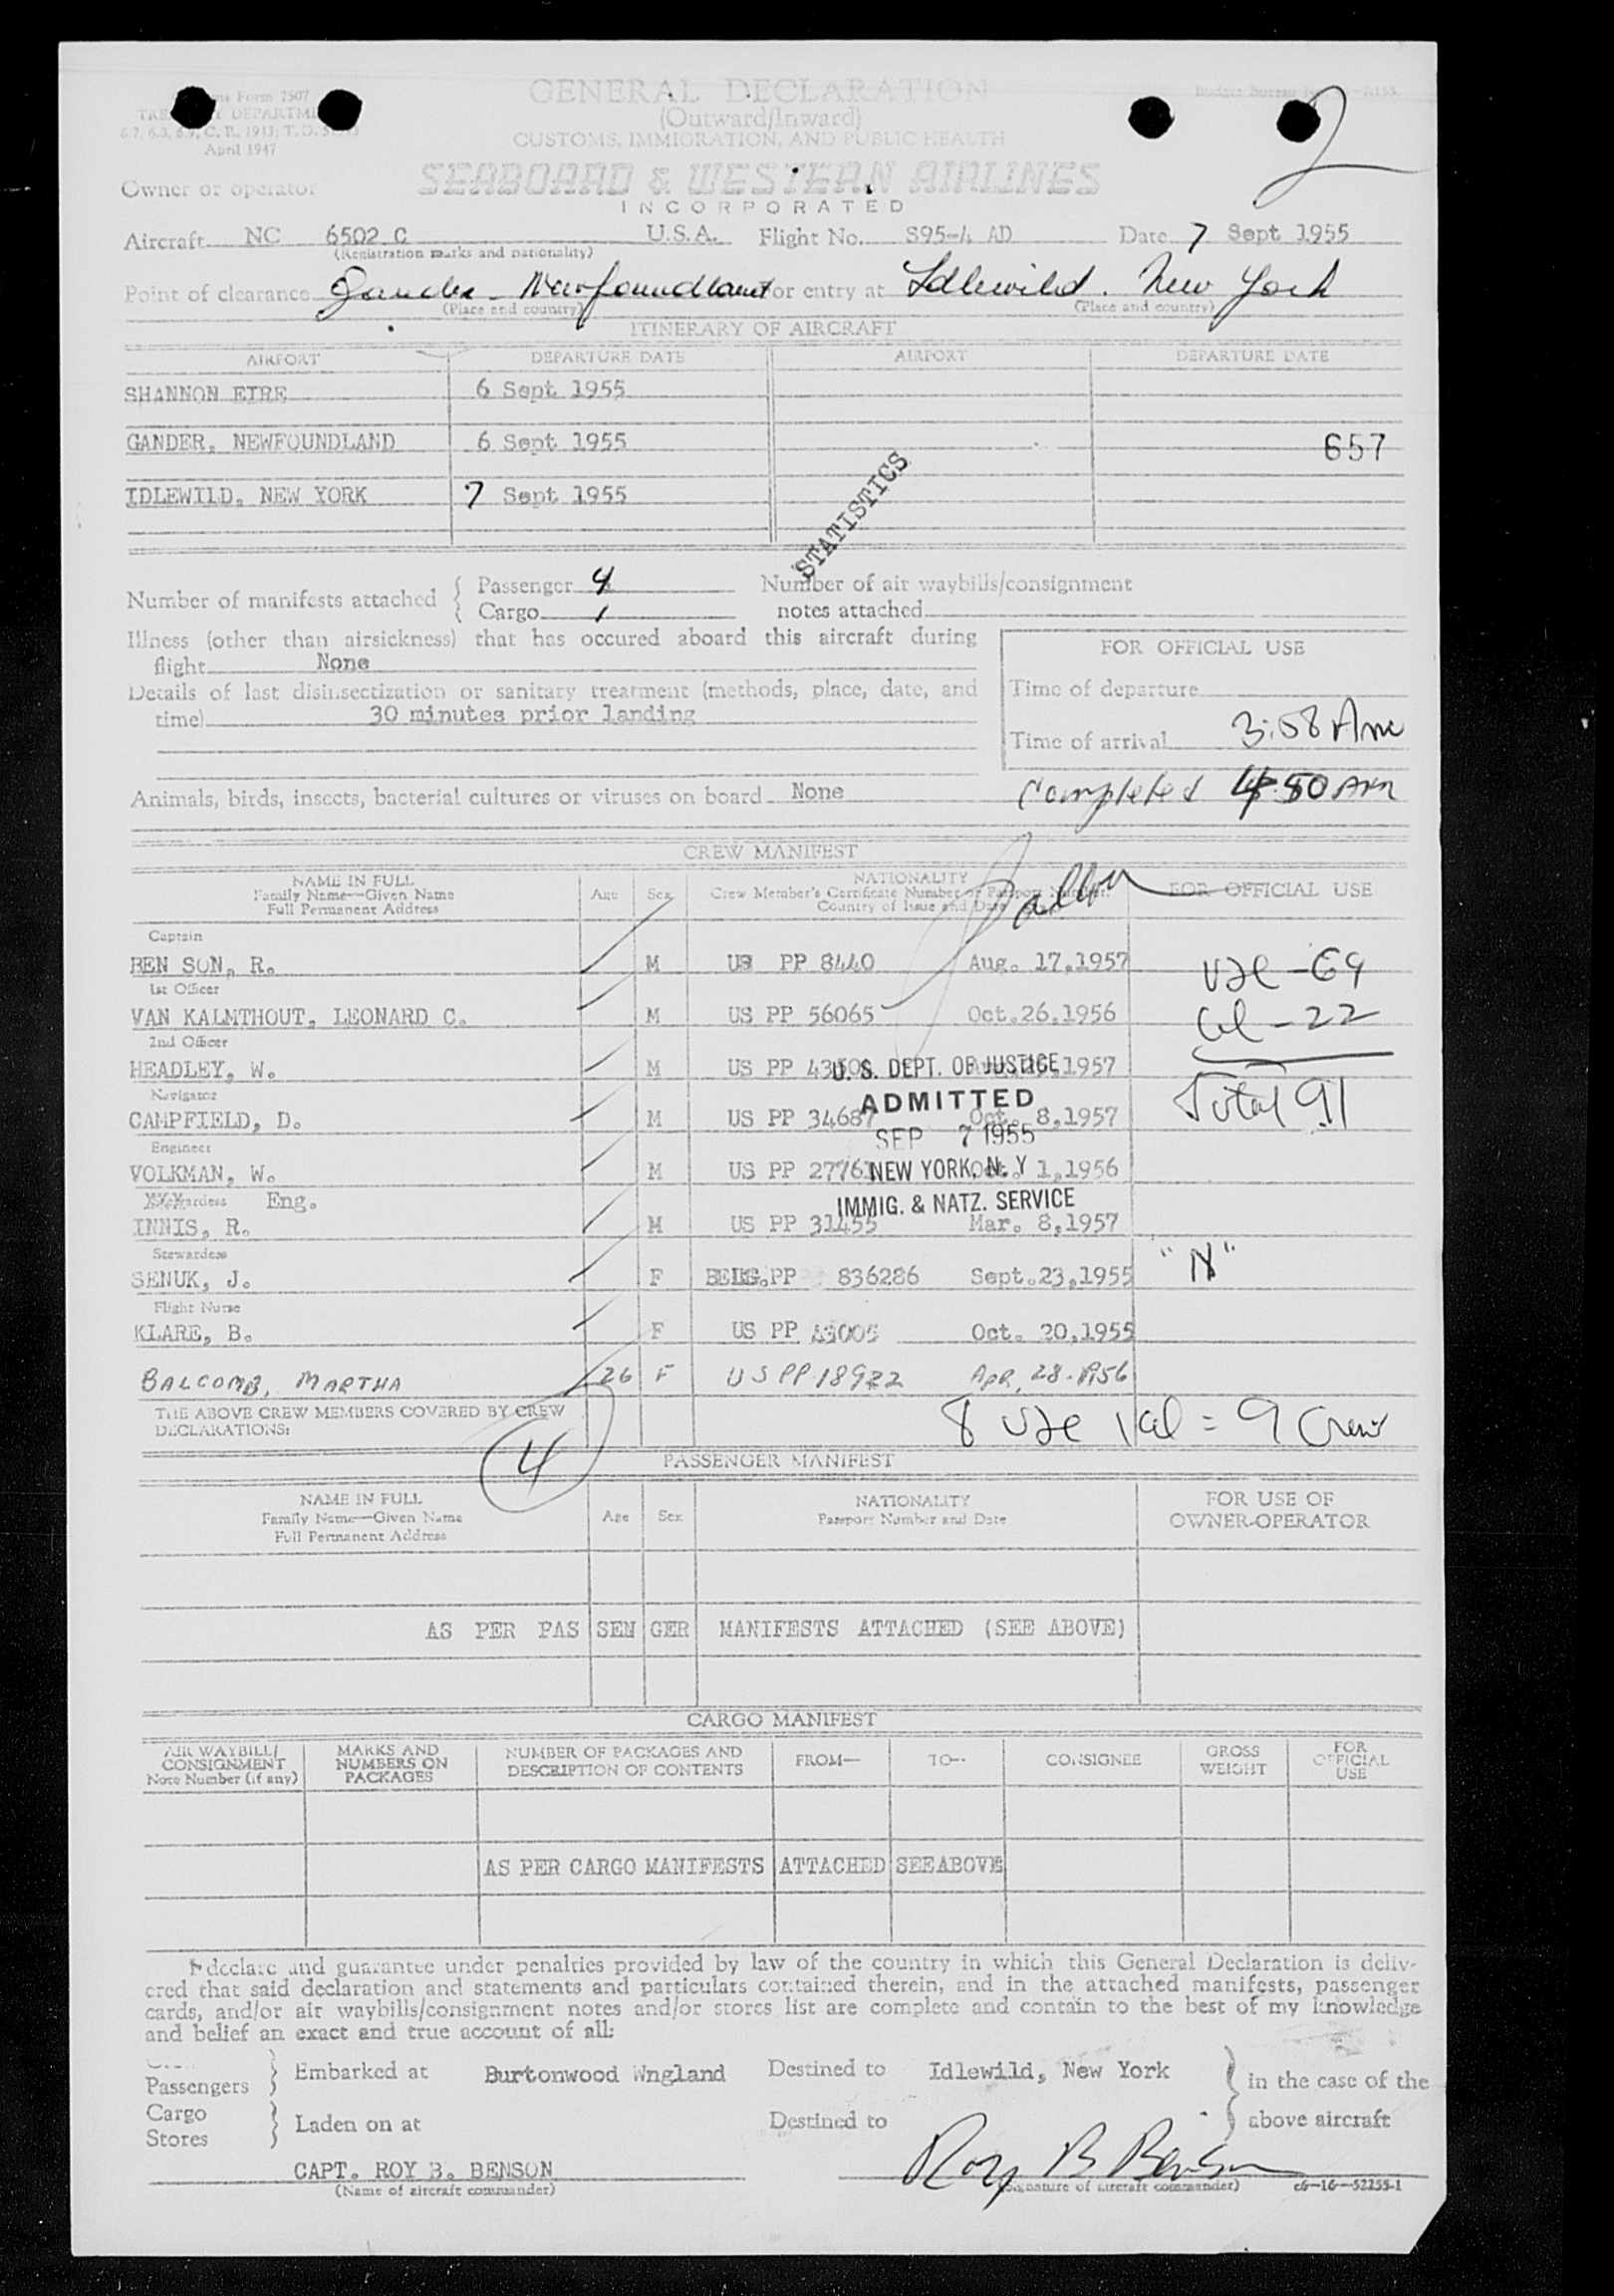 GENERAL DECLARATION
(Outward/Inward)
CUSTOMS, IMMIGRATION, AND PUBLIC HEALTH
Form 7507
April 1947
2
Owner or operator
SEABOARD & WESTERN AIRLINES
INCORPORATED
Aircraft NC 6502 C U.S.A. Flight No. S95-4 AD Date 7 Sept 1955
(Registration marks and nationality)
Point of clearance Gander - Newfoundland or entry at Idlewild. New York
(Place and country) (Place and country)
ITINERARY OF AIRCRAFT
AIRPORT DEPARTURE DATE AIRPORT DEPARTURE DATE
SHANNON EIRE 6 Sept 1955
GANDER, NEWFOUNDLAND 6 Sept 1955 657
IDLEWILD, NEW YORK 7 Sept 1955
STATISTICS
Number of manifests attached { Passenger 4 Number of air waybills/consignment
Cargo 1 notes attached
Illness (other than airsickness) that has occured aboard this aircraft during
flight None
FOR OFFICIAL USE
Details of last disinsectization or sanitary treatment (methods, place, date, and
time) 30 minutes prior landing
Time of departure
Time of arrival 3:58 Am
Completed 4:50 AM
Animals, birds, insects, bacterial cultures or viruses on board None
CREW MANIFEST
NAME IN FULL
Family Name—Given Name
Full Permanent Address
Age Sex
NATIONALITY
Crew Member's Certificate Number or Passport Number
Country of Issue and Date
FOR OFFICIAL USE
Captain
BEN SON, R. M US PP 8440 Aug. 17,1957
USC - 69
1st Officer
VAN KALMTHOUT, LEONARD C. M US PP 56065 Oct.26,1956
al - 22
2nd Officer
HEADLEY, W. M US PP 1957
Total 91
Navigator
CAMPFIELD, D. M US PP 34687 Oct. 8,1957
Engineer
VOLKMAN, W. M US PP 1,1956
Eng.
INNIS, R. M US PP 31455 Mar. 8,1957
U. S. DEPT. OF JUSTICE
ADMITTED
SEP 7 1955
NEW YORK, N. Y
IMMIG. & NATZ. SERVICE
Stewardess
SENUK, J. F BELG.PP 836286 Sept.23,1955 "N"
Flight Nurse
KLARE, B. F US PP A3005 Oct. 20,1955
BALCOMB, MARTHA 26 F US PP 18922 APR, 28-1956
THE ABOVE CREW MEMBERS COVERED BY CREW
DECLARATIONS:
8 USC 1 al = 9 Crew
4
PASSENGER MANIFEST
NAME IN FULL
Family Name—Given Name
Full Permanent Address
Age Sex
NATIONALITY
Passport Number and Date
FOR USE OF
OWNER-OPERATOR
AS PER PAS SEN GER MANIFESTS ATTACHED (SEE ABOVE)
CARGO MANIFEST
AIR WAYBILL/
CONSIGNMENT
Note Number (if any)
MARKS AND
NUMBERS ON
PACKAGES
NUMBER OF PACKAGES AND
DESCRIPTION OF CONTENTS
FROM— TO— CONSIGNEE
GROSS
WEIGHT
FOR
OFFICIAL
USE
AS PER CARGO MANIFESTS ATTACHED SEEABOVE
I declare and guarantee under penalties provided by law of the country in which this General Declaration is deliv-
ered that said declaration and statements and particulars contained therein, and in the attached manifests, passenger
cards, and/or air waybills/consignment notes and/or stores list are complete and contain to the best of my knowledge
and belief an exact and true account of all:
Passengers } Embarked at Burtonwood Wngland Destined to Idlewild, New York } in the case of the
Cargo
Stores } Laden on at Destined to above aircraft
CAPT. ROY B. BENSON Roy B Benson
(Name of aircraft commander) (Signature of aircraft commander) c6-16-52255-1